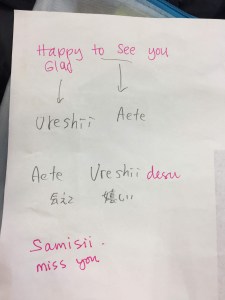 Happy to see you
Glad
Ureshii Aete
Aete Ureshii desu
会えて 嬉しい
Samisii.
miss you